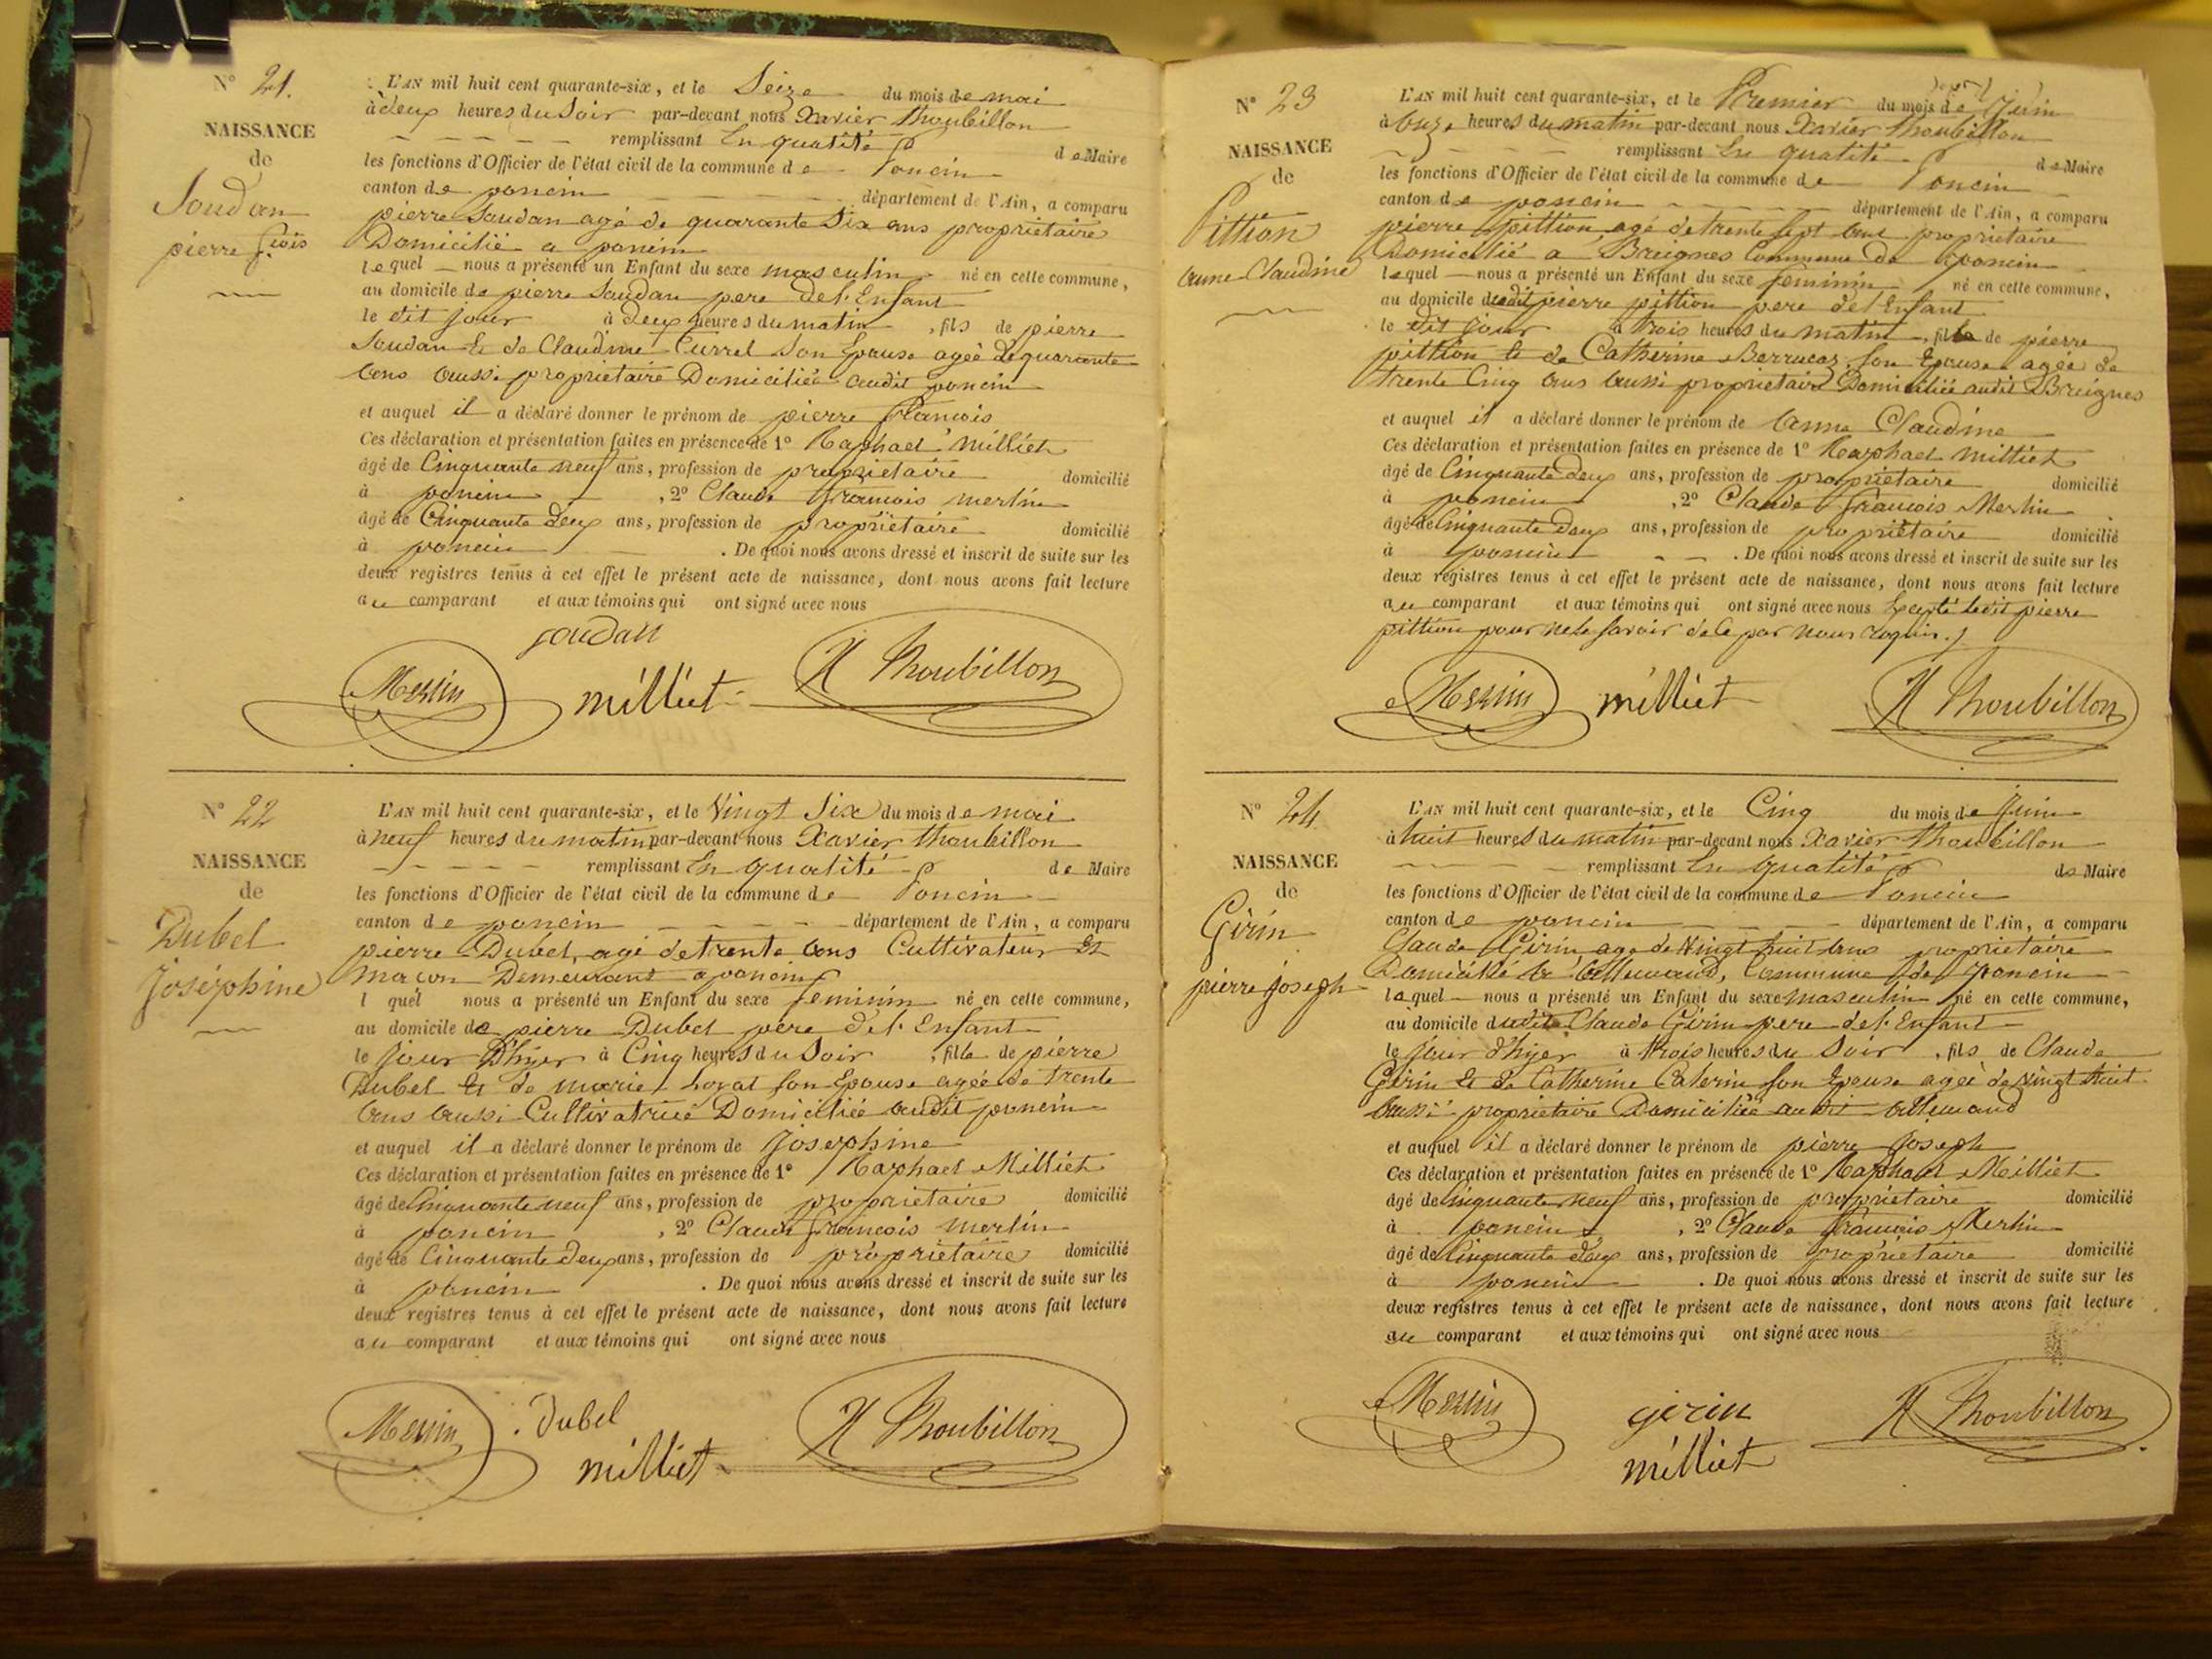 N° 21.
NAISSANCE
de
Soudan
pierre fçois
L'AN mil huit cent quarante-six, et le Seize du mois de mai
à deux heures du Soir par-devant nous Xavier thoubillon
remplissant En qualité de Maire
les fonctions d'Officier de l'état civil de la commune de Poncin
canton de poncin département de l'Ain, a comparu
pierre Soudan agé de quarante Six ans propriétaire
Domicilié a poncin
lequel nous a présenté un Enfant du sexe masculin né en cette commune,
au domicile de pierre Soudan pere de l'Enfant
le dit jour à deux heures du matin, fils de pierre
Soudan Et de Claudine Turrel Son Epouse agée de quarante
ans aussi propriétaire Domiciliée audit poncin
et auquel il a déclaré donner le prénom de pierre françois
Ces déclaration et présentation faites en présence de 1° Raphael Milliet
âgé de Cinquante neuf ans, profession de propriétaire domicilié
à poncin, 2° Claude françois merlin
âgé de Cinquante deux ans, profession de propriétaire domicilié
à poncin. De quoi nous avons dressé et inscrit de suite sur les
deux registres tenus à cet effet le présent acte de naissance, dont nous avons fait lecture
au comparant et aux témoins qui ont signé avec nous
soudan
Merlin milliet X Thoubillon
N° 22
NAISSANCE
de
Dubel
Joséphine
L'AN mil huit cent quarante-six, et le Vingt Six du mois de mai
à neuf heures du matin par-devant nous Xavier thoubillon
remplissant En qualité de Maire
les fonctions d'Officier de l'état civil de la commune de Poncin
canton de poncin département de l'Ain, a comparu
pierre Dubel, agé de trente ans Cultivateur Et
maçon Demeurant a poncin
l quel nous a présenté un Enfant du sexe feminin né en cette commune,
au domicile de pierre Dubel père de l'Enfant
le jour D'hyer à Cinq heures du Soir, fille de pierre
Dubel Et de marie son Epouse agée de trente
ans aussi Cultivatrice Domiciliée audit poncin
et auquel il a déclaré donner le prénom de Joséphine
Ces déclaration et présentation faites en présence de 1° Raphael Milliet
âgé de Cinquante neuf ans, profession de propriétaire domicilié
à poncin, 2° Claude françois merlin
âgé de Cinquante deux ans, profession de propriétaire domicilié
à poncin. De quoi nous avons dressé et inscrit de suite sur les
deux registres tenus à cet effet le présent acte de naissance, dont nous avons fait lecture
au comparant et aux témoins qui ont signé avec nous
Merlin Dubel X Thoubillon
milliet
N° 23
NAISSANCE
de
Pittion
anne Claudine
L'AN mil huit cent quarante-six, et le Premier du mois de Juin
à onze heures du matin par-devant nous Xavier thoubillon
remplissant En qualité de Maire
les fonctions d'Officier de l'état civil de la commune de Poncin
canton de poncin département de l'Ain, a comparu
pierre pittion agé de trente sept ans propriétaire
Domicilié a Breignes Commune de poncin
lequel nous a présenté un Enfant du sexe feminin né en cette commune,
au domicile dudit pierre pittion pere de l'Enfant
le dit jour à trois heures du matin, fille de pierre
pittion Et de Catherine Berrucaz son Epouse agée de
trente Cinq ans aussi propriétaire Domiciliée audit Breignes
et auquel il a déclaré donner le prénom de anne Claudine
Ces déclaration et présentation faites en présence de 1° Raphael milliet
âgé de Cinquante deux ans, profession de propriétaire domicilié
à poncin, 2° Claude françois Merlin
âgé de Cinquante deux ans, profession de propriétaire domicilié
à poncin. De quoi nous avons dressé et inscrit de suite sur les
deux registres tenus à cet effet le présent acte de naissance, dont nous avons fait lecture
au comparant et aux témoins qui ont signé avec nous Excepté ledit pierre
pittion pour ne le savoir de Ce par nous requis.
Merlin milliet X Thoubillon
N° 24
NAISSANCE
de
Girin
pierre joseph
L'AN mil huit cent quarante-six, et le Cinq du mois de Juin
à huit heures du matin par-devant nous Xavier thoubillon
remplissant En qualité de Maire
les fonctions d'Officier de l'état civil de la commune de Poncin
canton de poncin département de l'Ain, a comparu
Claude Girin age de Vingt huit ans propriétaire
Domicilié a allemand, Commune de poncin
lequel nous a présenté un Enfant du sexe masculin né en cette commune,
au domicile dudit Claude Girin pere de l'Enfant
le jour d'hyer à trois heures du Soir, fils de Claude
Girin Et de Catherine son Epouse agée de vingt huit
aussi propriétaire Domiciliée audit allemand
et auquel il a déclaré donner le prénom de pierre Joseph
Ces déclaration et présentation faites en présence de 1° Raphael Milliet
âgé de Cinquante neuf ans, profession de propriétaire domicilié
à poncin, 2° Claude françois Merlin
âgé de Cinquante deux ans, profession de propriétaire domicilié
à poncin. De quoi nous avons dressé et inscrit de suite sur les
deux registres tenus à cet effet le présent acte de naissance, dont nous avons fait lecture
au comparant et aux témoins qui ont signé avec nous
Merlin girin X Thoubillon
milliet